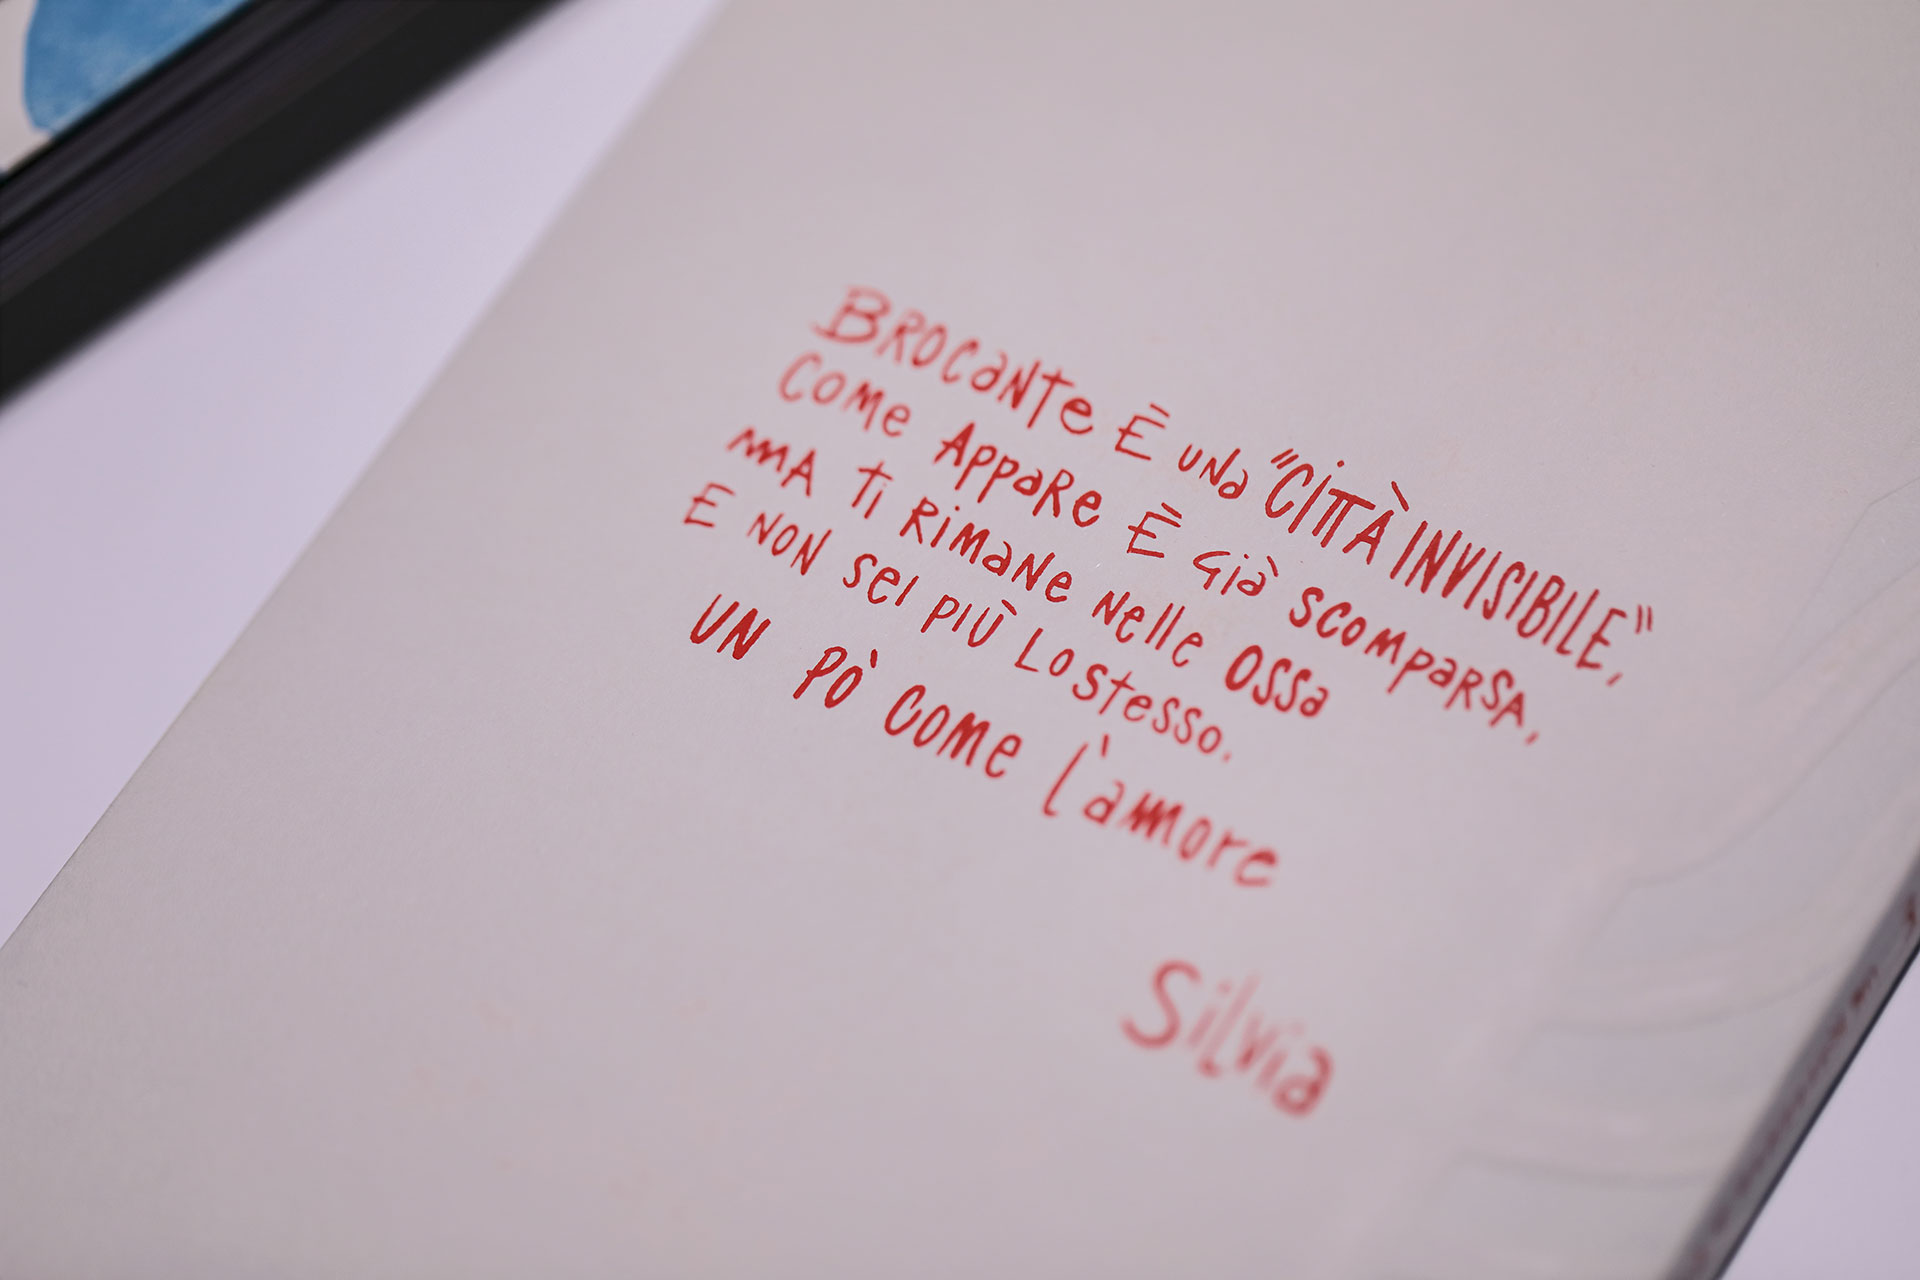 BROCaNTe È UNa "CITTÀ INVISIBILE,"
COMe APPaRe È Già SCOMPaRSA,
MA Ti RiMaNe Nelle OSSa
E NON Sei PIÙ LO STeSSO.
UN PÒ COMe L'aMore
SiLVia